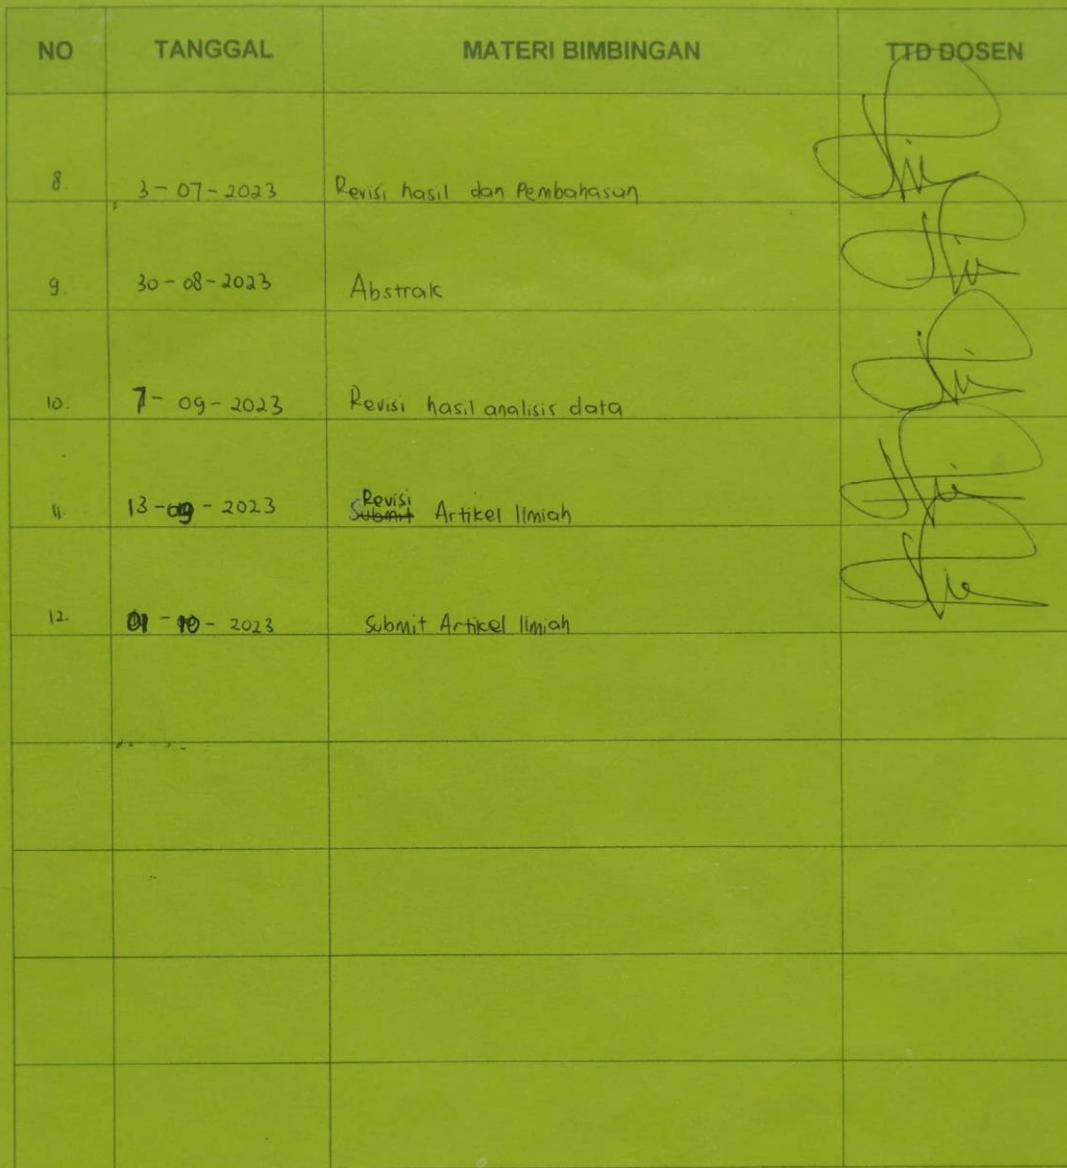 NO TANGGAL MATERI BIMBINGAN TTD DOSEN
8. 3-07-2023 Revisi hasil dan Pembahasan
9. 30-08-2023 Abstrak
10. 7-09-2023 Revisi hasil analisis data
Revisi
11. 13-09-2023 Submit Artikel Ilmiah
12. 01-10-2023 Submit Artikel Ilmiah